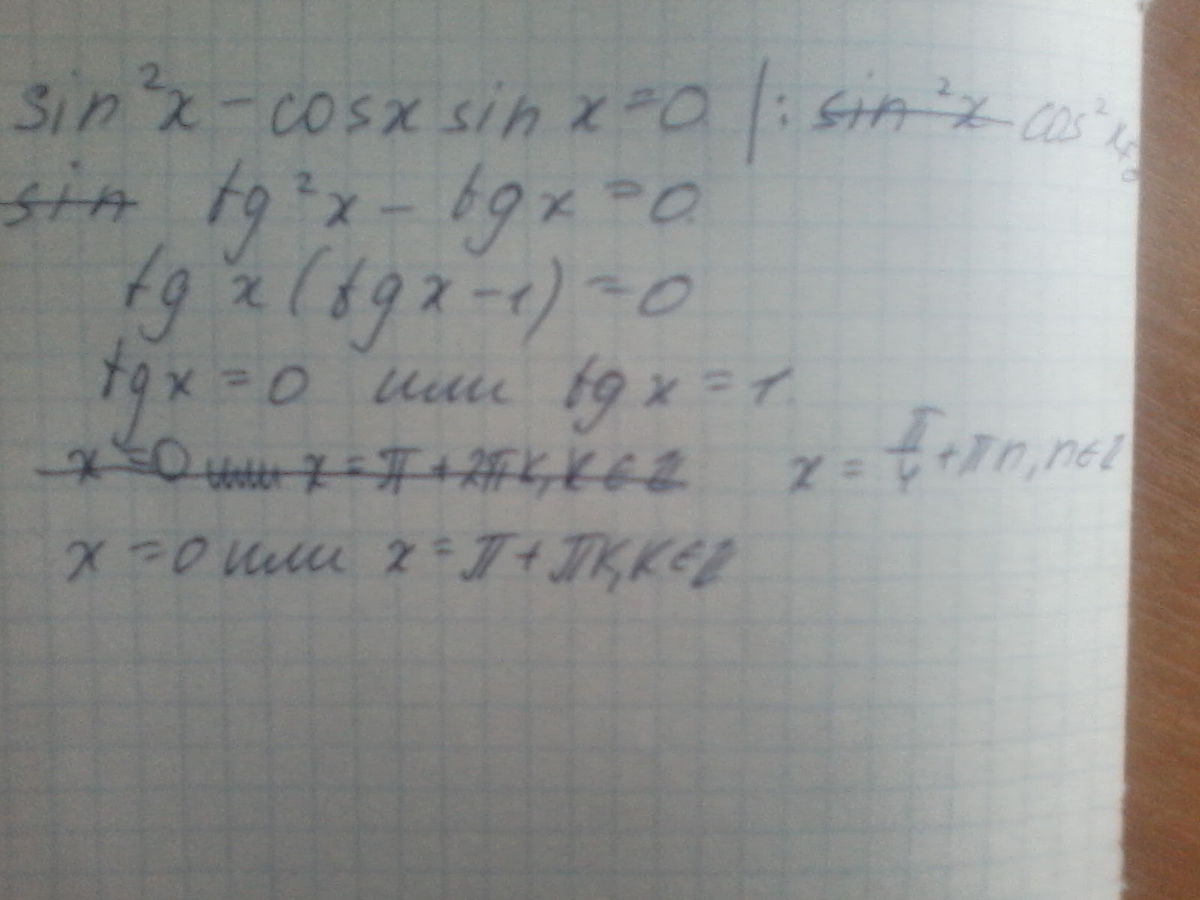 sin²x - cosx sin x = 0 |: ~~sin²x~~ cos²x≠0
~~sin~~ tg²x - tgx = 0
tg x (tgx - 1) = 0
tgx = 0 или tgx = 1.
~~x = 0 или x = π + 2πk, k ∈ Z~~ x = π/4 + πn, n ∈ Z
x = 0 или x = π + πk, k ∈ Z